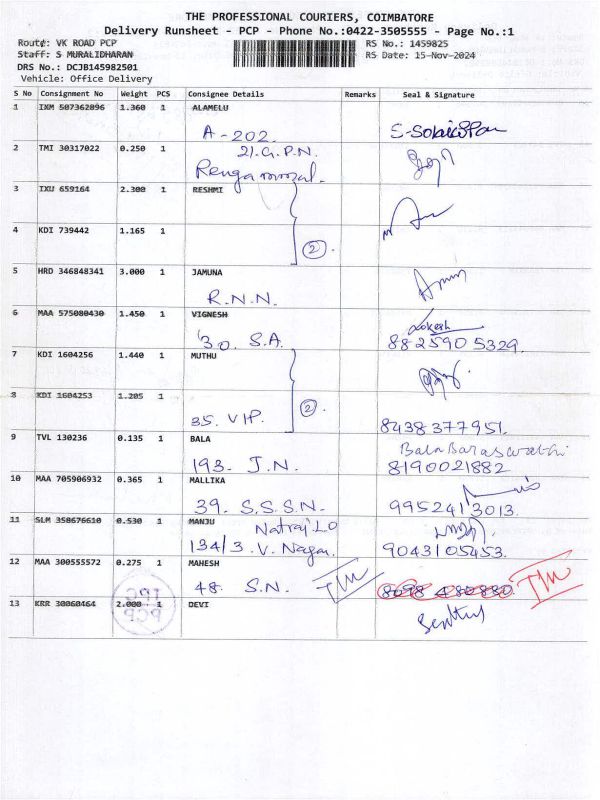 THE PROFESSIONAL COURIERS, COIMBATORE
Delivery Runsheet - PCP - Phone No.:0422-3505555 - Page No.:1
Route: VK ROAD PCP RS No.: 1459825
Staff: S MURALIDHARAN RS Date: 15-Nov-2024
DRS No.: DCJB145982501
Vehicle: Office Delivery
S No Consignment No Weight PCS Consignee Details Remarks Seal & Signature
1 IXM 507362896 1.360 1 ALAMELU
A-202.
2 TMI 30317022 0.250 1 21.G.P.N.
Rengammal.
3 IXU 659164 2.300 1 RESHMI
4 KDI 739442 1.165 1
2
5 HRD 346848341 3.000 1 JAMUNA
R.N.N.
6 MAA 575080430 1.450 1 VIGNESH Lokesh
30. S.A. 8825905329.
7 KDI 1604256 1.440 1 MUTHU
8 KDI 1604253 1.205 1 2
35. VIP. 8438377951.
9 TVL 130236 0.135 1 BALA
193. J.N. 8190021882
10 MAA 705906932 0.365 1 MALLIKA
39. S.S.S.N. 9952413013.
11 SLM 350676610 0.530 1 MANJU Natraj LO
134/3. V. Nagar. 9043105453.
12 MAA 300555572 0.275 1 MAHESH
48. S.N.
13 KRR 30060464 2.000 1 DEVI
PCP